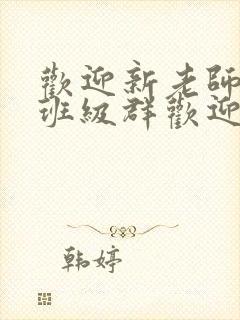 歡迎新老師
班級群歡迎
韩婷